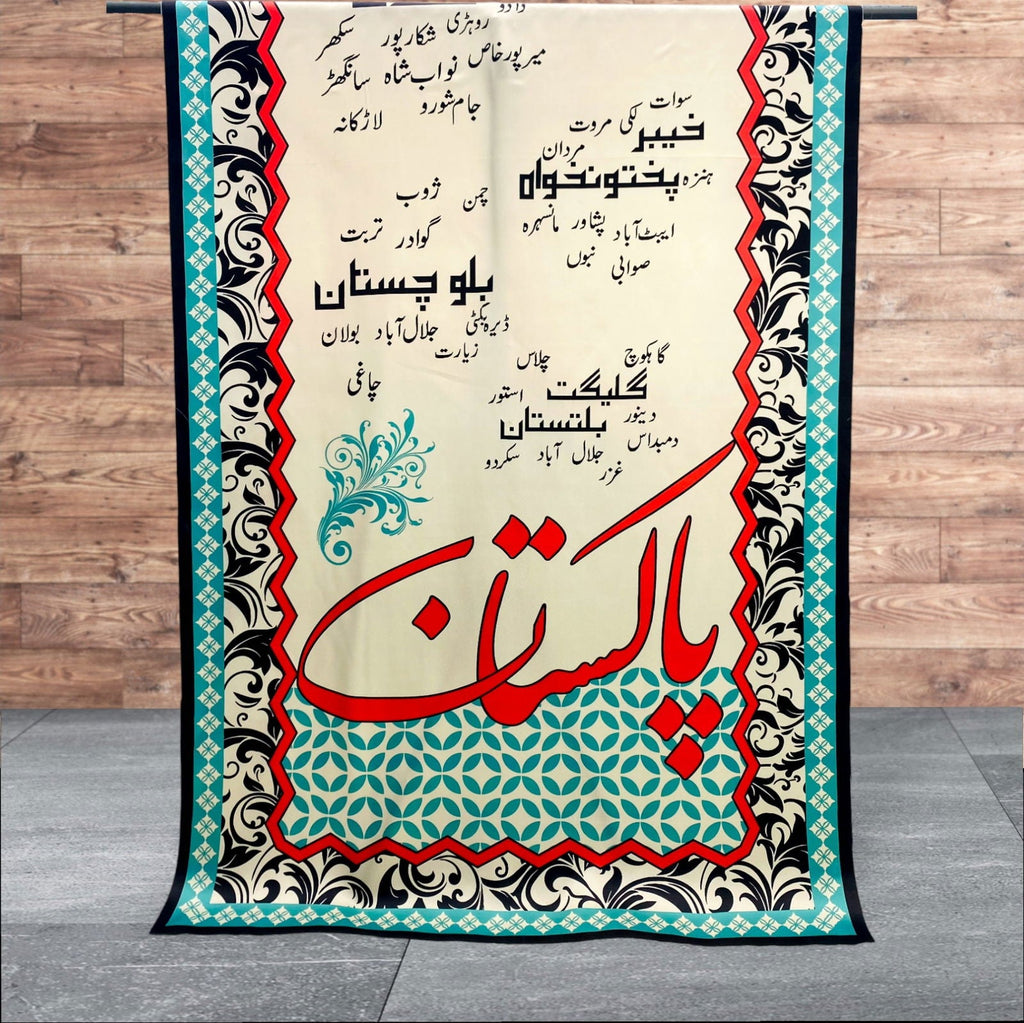 دادو
روہڑی
شکارپور سکھر
میرپورخاص
نواب‌شاہ سانگھڑ
جام‌شورو
لاڑکانہ
سوات
لکی مروت
خیبر
مردان
ہنزہ پختونخواہ
ژوب
چمن
ایبٹ‌آباد پشاور مانسہرہ
گوادر تربت
صوابی نبوں
بلوچستان
ڈیرہ‌بگٹی جلال‌آباد بولان
زیارت
گاہکوچ چلاس
چاغی
گلیگت استور
دینور
بلتستان
دمبداس
جلال آباد سکردو
غزر
پاکستان